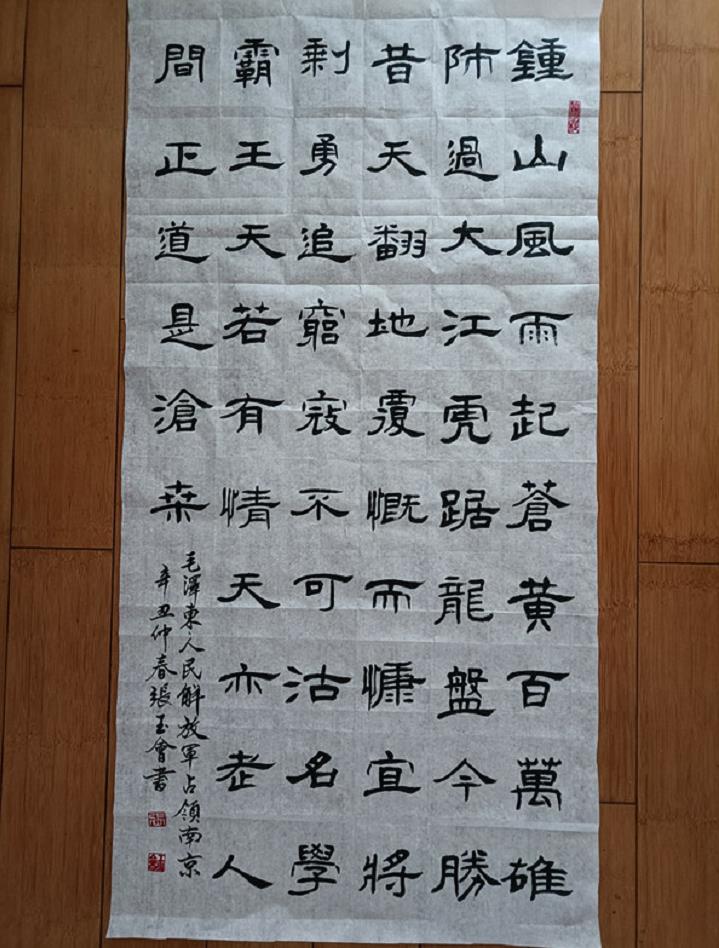 鍾山風雨起蒼黄百萬雄
師過大江虎踞龍盤今勝
昔天翻地覆慨而慷宜將
剩勇追窮寇不可沽名學
霸王天若有情天亦老人
間正道是滄桒
毛澤東人民解放軍占領南京
辛丑仲春張玉會書